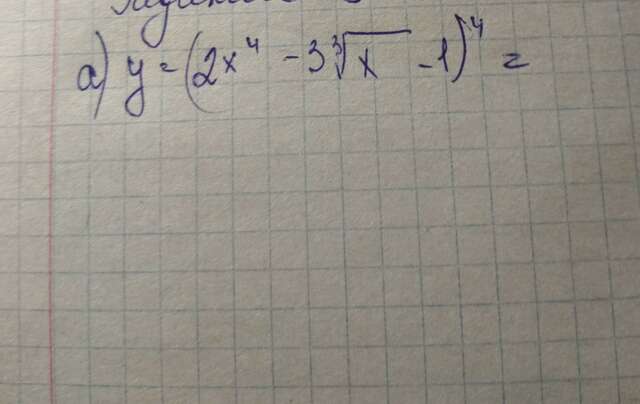 a) y = (2x⁴ - 3∛x - 1)⁴ =